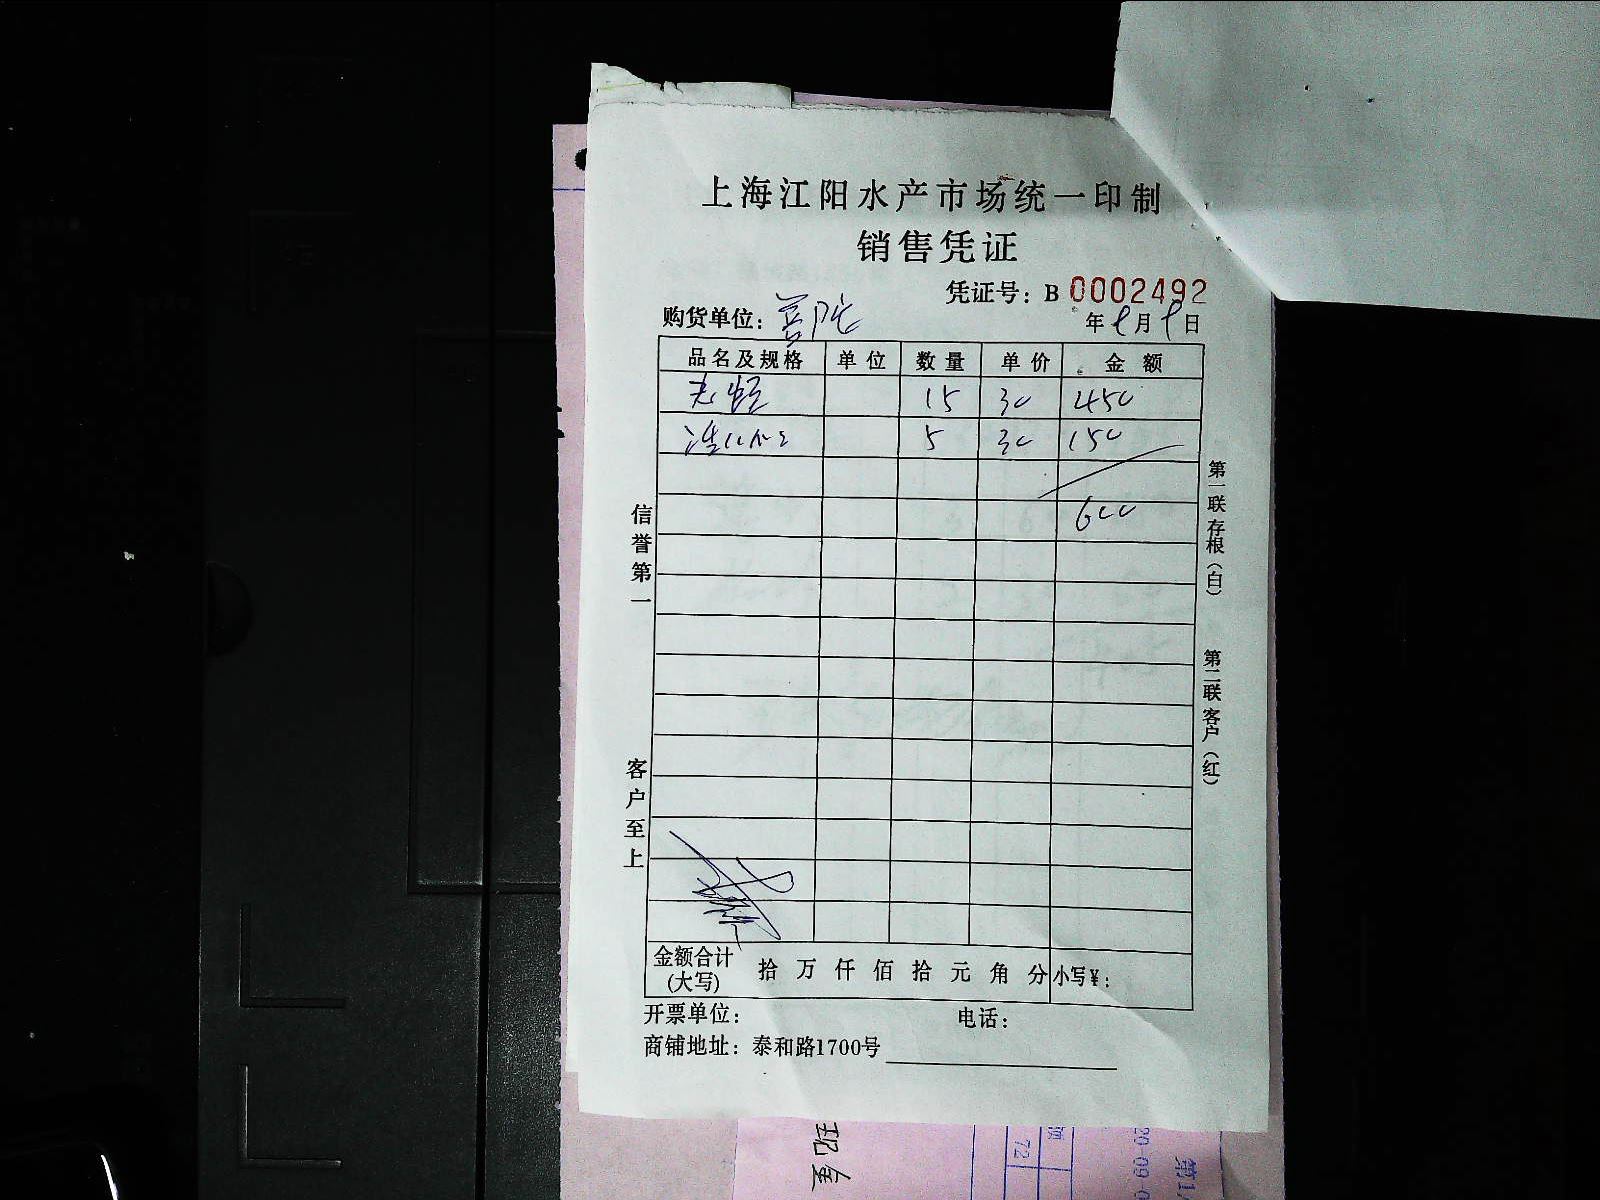 上海江阳水产市场统一印制
销售凭证
凭证号：B 0002492
购货单位：普陀
年9月9日
品名及规格 单位 数量 单价 金额
15 30 450
5 30 150
600
信誉第一
客户至上
第一联存根（白）
第二联客户（红）
金额合计(大写) 拾 万 仟 佰 拾 元 角 分 小写¥：
开票单位： 电话：
商铺地址：泰和路1700号
现金
72
20-09-0